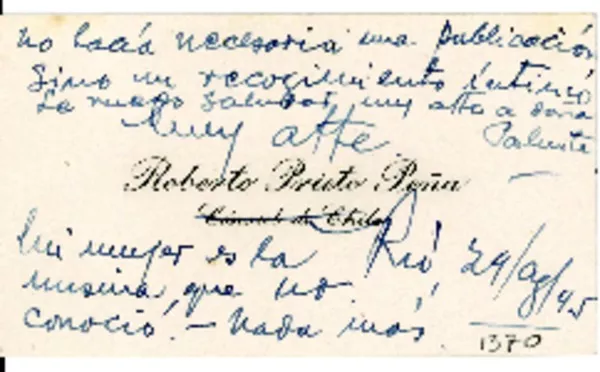 no hacía necesaria una publicación
sino un recogimiento íntimo
Le ruego saludar muy atte a doña
Muy atte.
Roberto Prieto Peña
Cónsul de Chile
Mi mujer es la
misma, que no
conoció. — Nada más.
Río, 29/Ag/45
1370